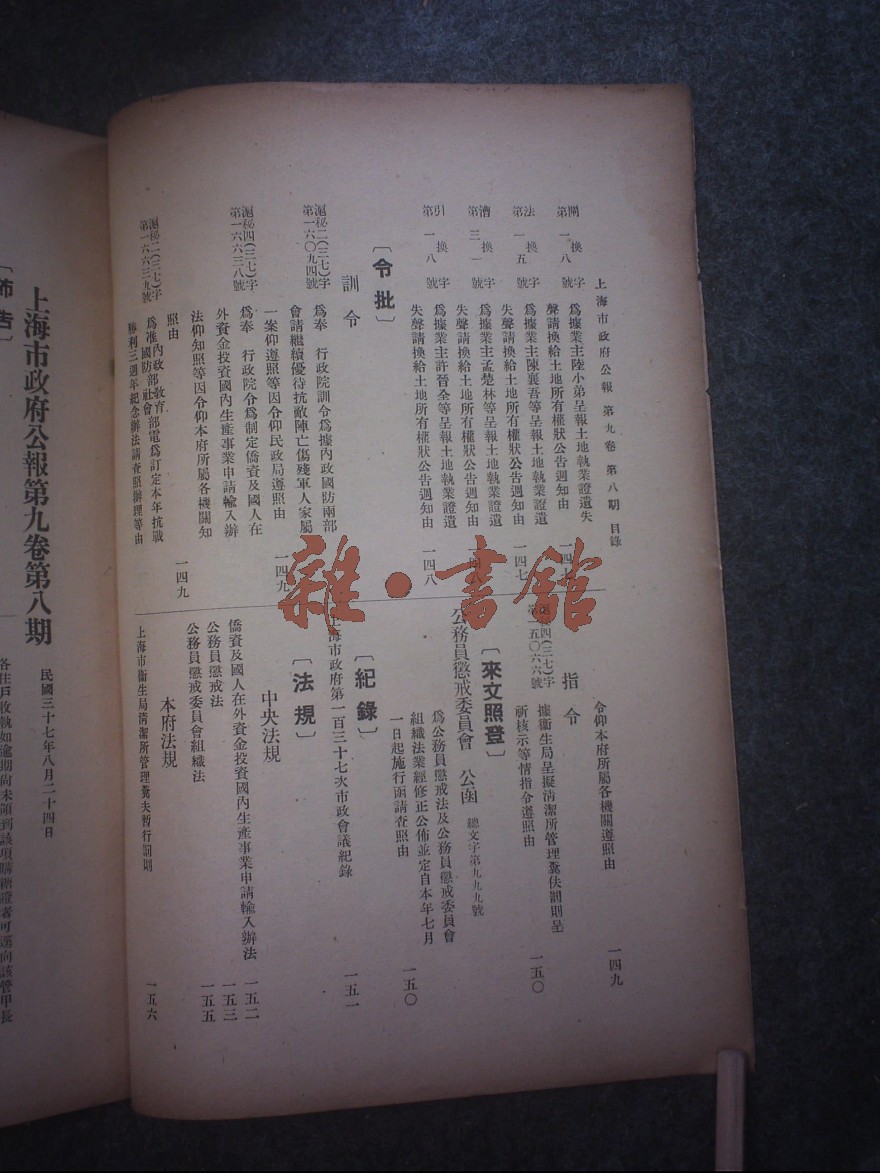 上海市政府公報 第九卷 第八期 目錄
閘換字第一八號
為據業主陸小弟呈報土地執業證遺失
聲請換給土地所有權狀公告週知由
一四七
法換字第一五號
為據業主陳襄吾等呈報土地執業證遺
失聲請換給土地所有權狀公告週知由
一四七
漕換字第三一號
為據業主孟楚林等呈報土地執業證遺
失聲請換給土地所有權狀公告週知由
引換字第一八號
為據業主許晉全等呈報土地執業證遺
失聲請換給土地所有權狀公告週知由
一四八
〔令批〕
訓令
滬秘二(三七)字第一六〇九四號
為奉 行政院訓令為據內政國防兩部
會請繼續優待抗敵陣亡傷殘軍人家屬
一案仰遵照等因令仰民政局遵照由
一四九
滬秘四(三七)字第一六六三八號
為奉 行政院令為制定僑資及國人在
外資金投資國內生產事業申請輸入辦
法仰知照等因令仰本府所屬各機關知
照由
一四九
滬秘二(三七)字第一六六三九號
為准內政部教育部國防部社會部電為訂定本年抗戰
勝利三週年紀念辦法請查照辦理等由
令仰本府所屬各機關遵照由
一四九
指令
滬四(三七)字第一五〇六六號
據衞生局呈擬清潔所管理糞伕罰則呈
祈核示等情指令遵照由
一五〇
〔來文照登〕
公務員懲戒委員會 公函 總文字第九九九號
為公務員懲戒法及公務員懲戒委員會
組織法業經修正公佈並定自本年七月
一日起施行函請查照由
一五〇
〔紀錄〕
上海市政府第一百三十七次市政會議紀錄
一五一
〔法規〕
中央法規
僑資及國人在外資金投資國內生產事業申請輸入辦法
一五二
公務員懲戒法
一五三
公務員懲戒委員會組織法
一五五
本府法規
上海市衞生局清潔所管理糞夫暫行罰則
一五六
上海市政府公報第九卷第八期
民國三十七年八月二十四日
〔佈告〕
各住戶收執如逾期尚未領到該項購糖證者可逕向該管甲長
雜·書館